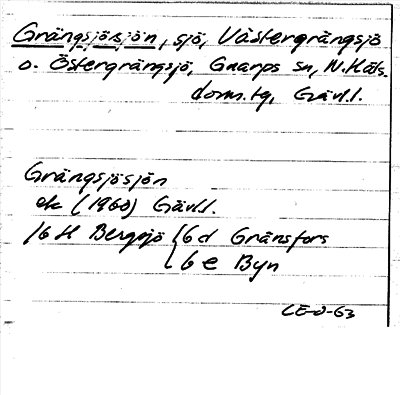 Grängsjösjön, sjö, Västergrängsjö
o. Östergrängsjö, Gnarps sn, N. Häls.
dom.tg, Gävl.l.
Grängsjösjön
ek (1960) Gävl.l.
16 H Bergsjö 6 d Gränsfors
6 e Byn
CE-0-63